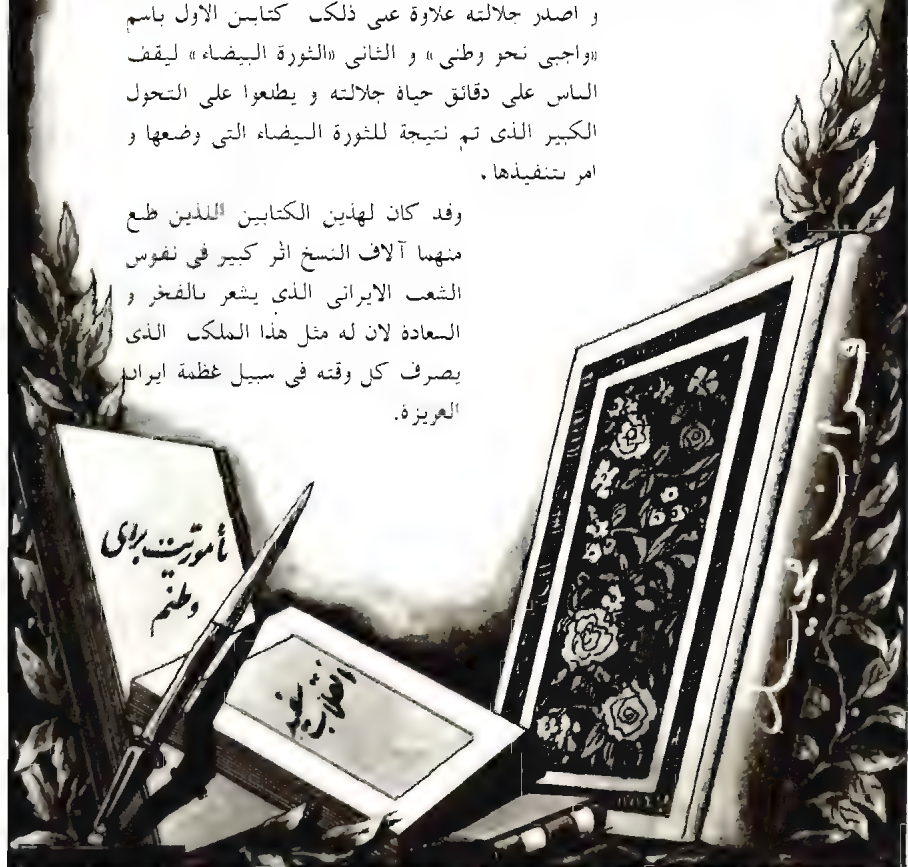 و اصدر جلالته علاوة على ذلك كتابين الاول باسم
«واجبى نحو وطنى» و الثانى «الثورة البيضاء» ليقف
الناس على دقائق حياة جلالته و يطلعوا على التحول
الكبير الذى تم نتيجة للثورة البيضاء التى وضعها و
امر بتنفيذها.
وقد كان لهذين الكتابين اللذين طبع
منهما آلاف النسخ اثر كبير فى نفوس
الشعب الايرانى الذى يشعر بالفخر و
السعادة لان له مثل هذا الملك الذى
يصرف كل وقته فى سبيل عظمة ايران
العزيزة.
مأموریت برای
وطنم
انقلاب سفید
قرآن مجید